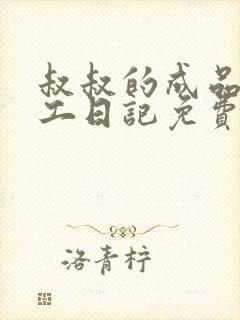 叔叔的成品
工日記免費
洛青柠